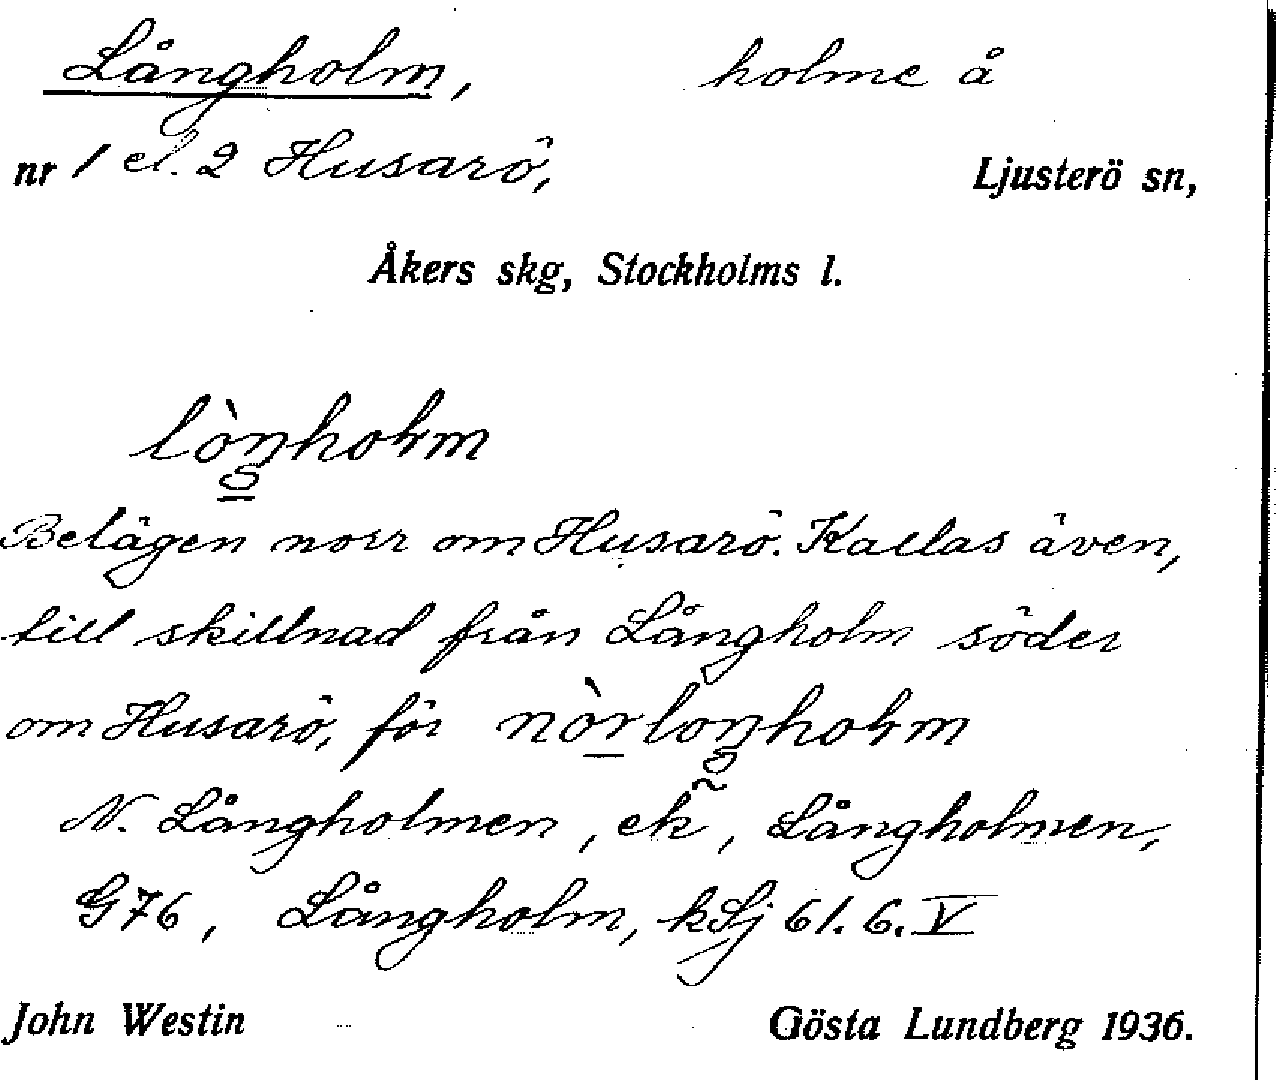 Långholm, holme å
nr 1 el. 2 Husarö, Ljusterö sn,
Åkers skg, Stockholms l.
lòŋholm
Belägen norr om Husarö. Kallas även,
till skillnad från Långholm söder
om Husarö, för nòrloŋholm
N. Långholmen, ek, Långholmen,
G76, Långholm, kSj 61.6.V
John Westin Gösta Lundberg 1936.